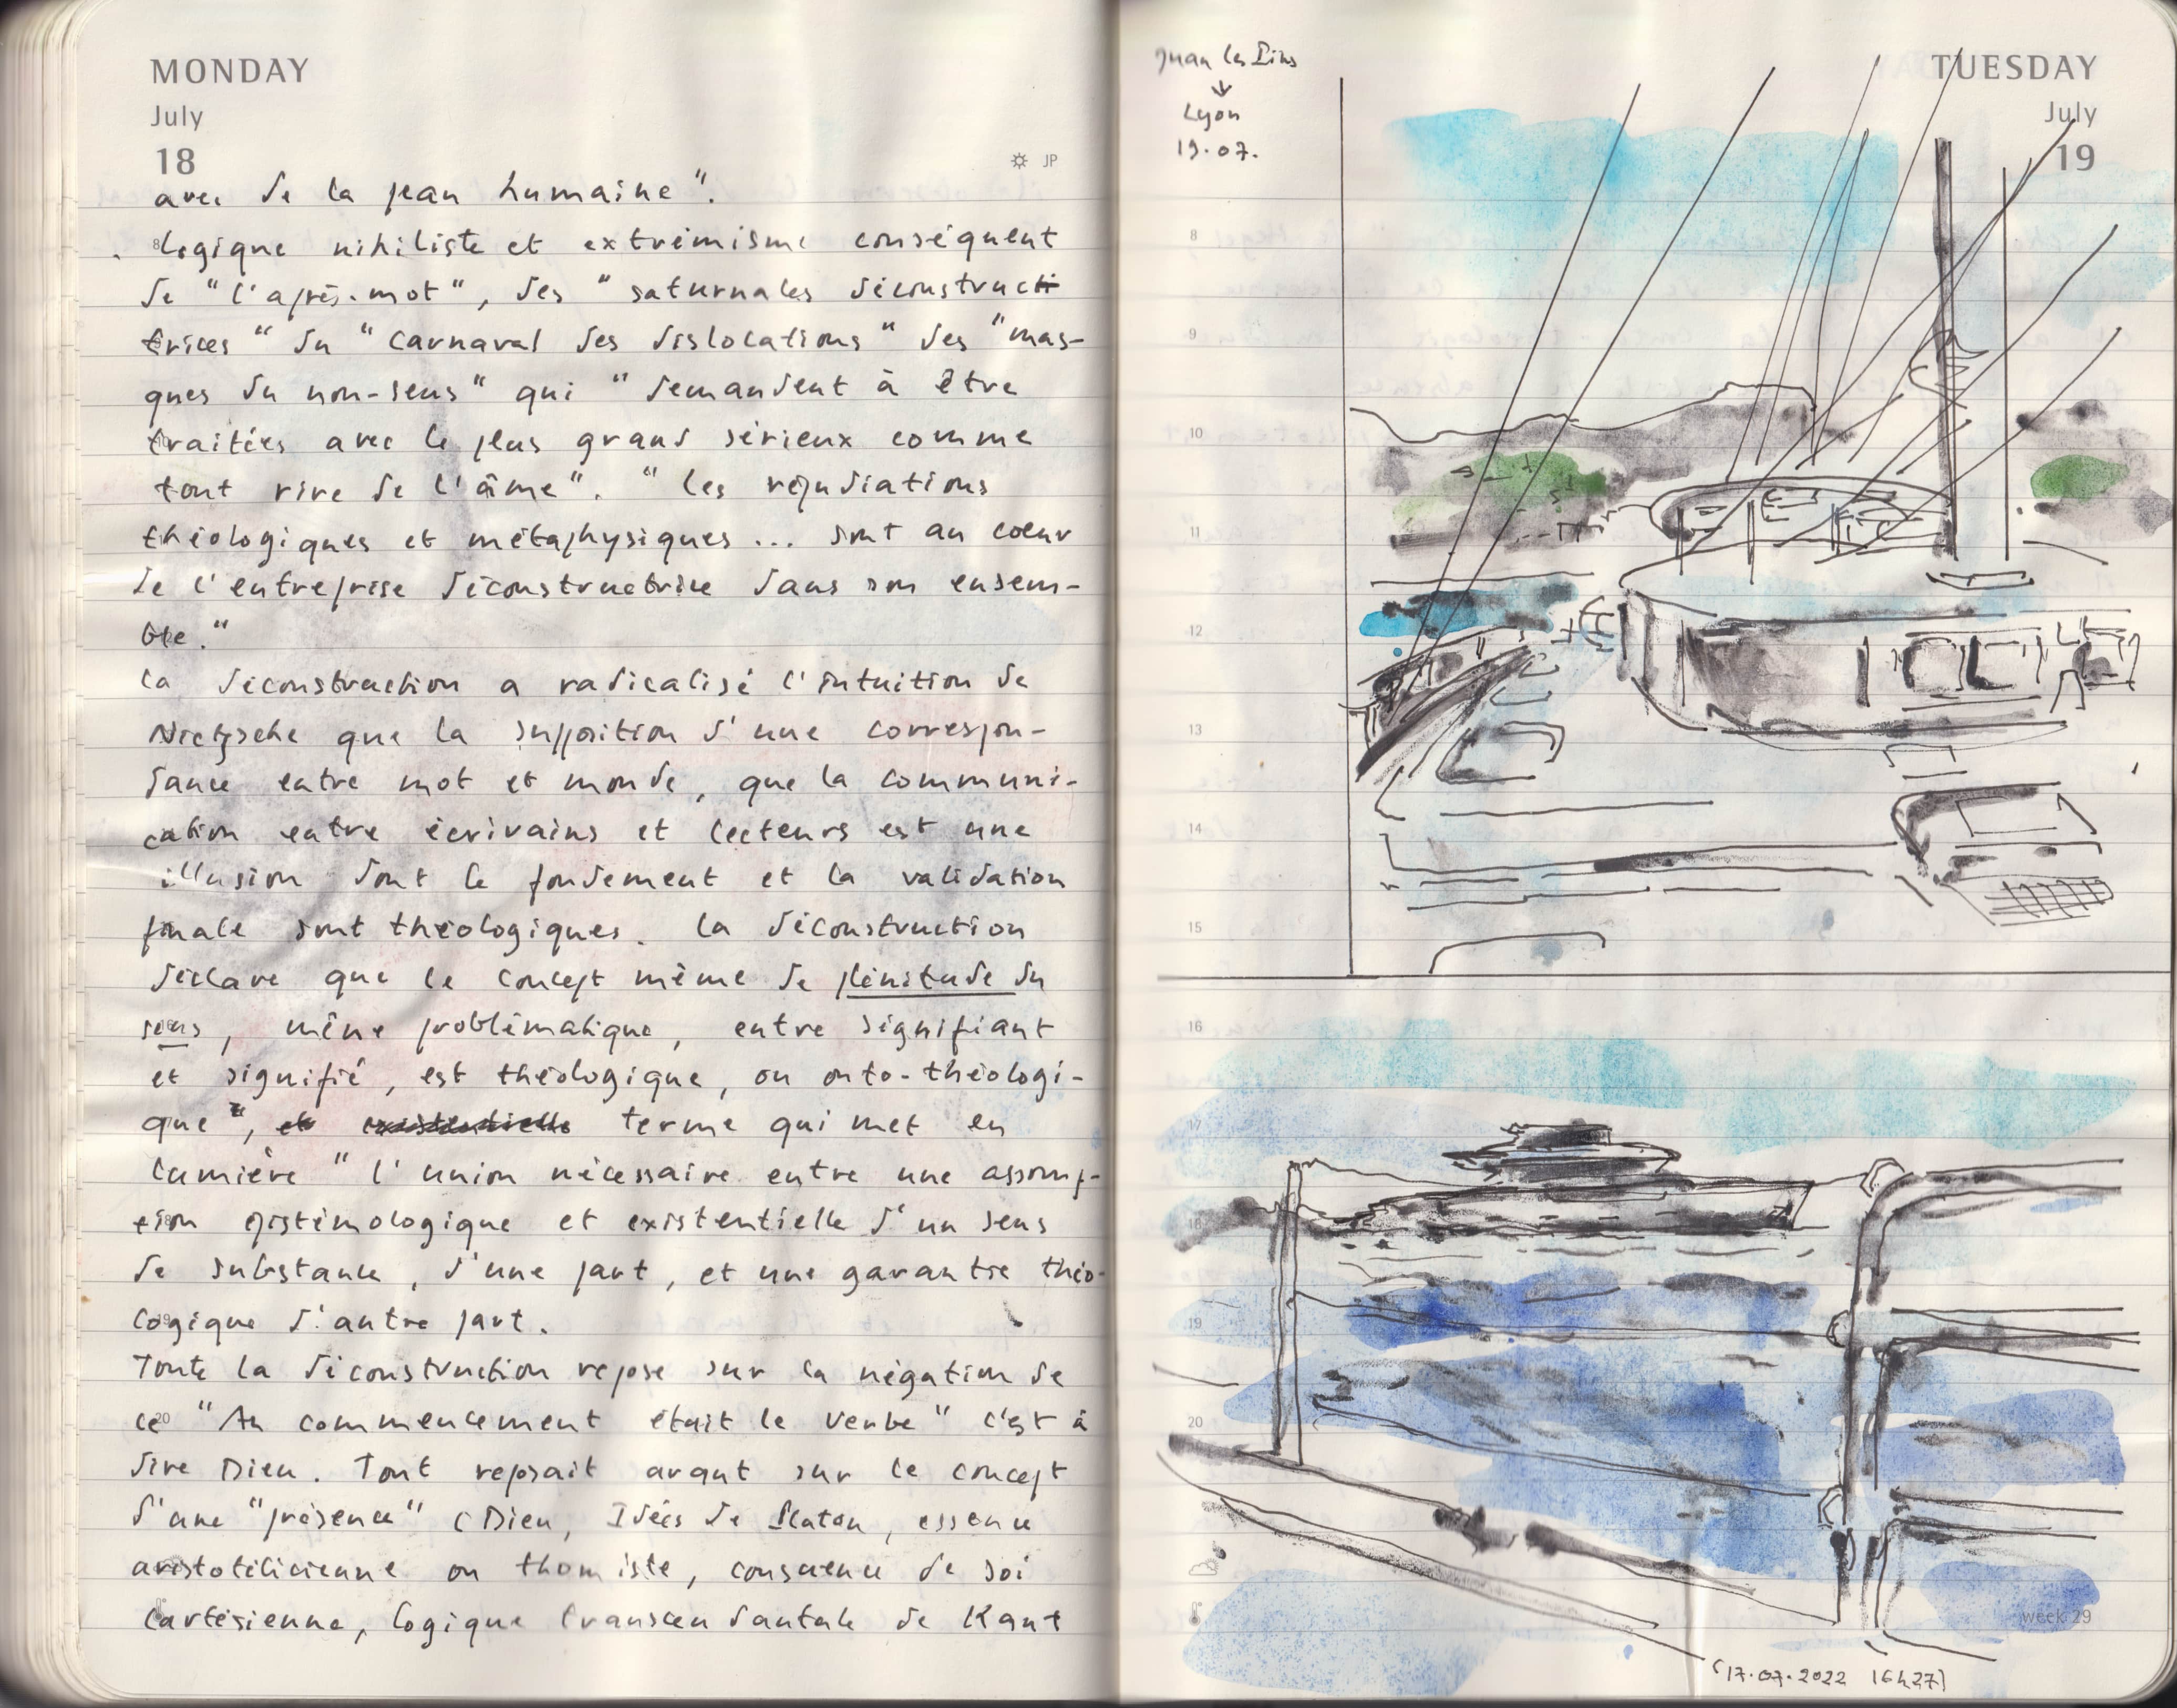 MONDAY
July
18
JP
avec de la peau humaine".
. Logique nihiliste et extrémisme conséquent
de "l'après-mot", des "saturnales déconstructi
trices" du "Carnaval des dislocations" des "mas-
ques du non-sens" qui "demandent à être
traitées avec le plus grand sérieux comme
tout rire de l'âme". "les répudiations
théologiques et métaphysiques... sont au coeur
de l'entreprise déconstructrice dans son ensem-
ble."
La déconstruction a radicalisé l'intuition de
Nietzsche que la supposition d'une correspon-
dance entre mot et monde, que la communi-
cation entre écrivains et lecteurs est une
illusion dont le fondement et la validation
finale sont théologiques. La déconstruction
déclare que le concept même de plénitude du
sens, même problématique, entre signifiant
et signifié, est théologique, ou onto-théologi-
que", et existentielle terme qui met en
lumière "l'union nécessaire entre une assomp-
tion épistémologique et existentielle d'un sens
de substance, d'une part, et une garantie théo-
logique d'autre part.
Toute la déconstruction repose sur la négation de
ce "Au commencement était le Verbe" c'est à
dire Dieu. Tout reposait avant sur le concept
d'une "présence" (Dieu, Idées de Platon, essence
aristotélicienne ou thomiste, conscience de soi
cartésienne, logique transcendantale de Kant
Juan les Pins
↓
Lyon
19.07.
TUESDAY
July
19
8
9
10
11
12
13
14
15
16
17
18
19
20
week 29
(17.07.2022 16h27)